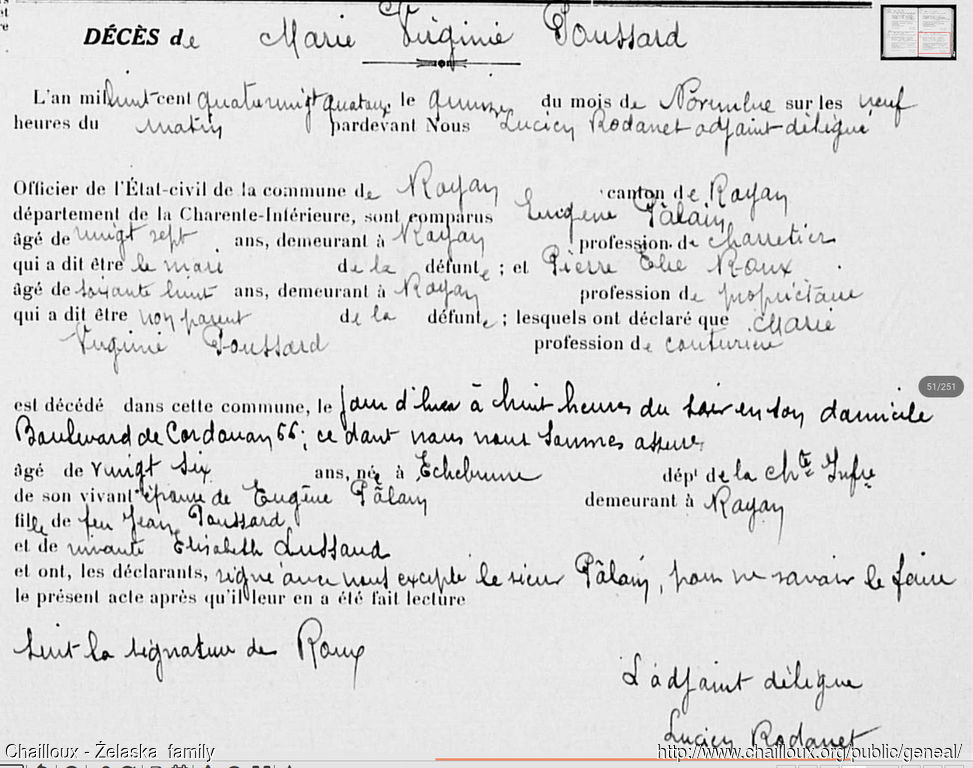 DÉCÈS de Marie Virginie Poussard
L'an mil huit cent quatrevingt quatorze le quinze du mois de Novembre sur les neuf
heures du matin pardevant Nous Lucien Rodanet adjoint délégué
Officier de l'État-civil de la commune de Royan canton de Royan
département de la Charente-Inférieure, sont comparus Eugène Pâlain
âgé de vingt sept ans, demeurant à Royan profession de charretier
qui a dit être le mari de la défunte ; et Pierre Elie Roux
âgé de soixante huit ans, demeurant à Royan profession de propriétaire
qui a dit être non parent de la défunte ; lesquels ont déclaré que Marie
Virginie Poussard profession de couturière
est décédé dans cette commune, le jour d'hier à huit heures du soir en son domicile
Boulevard de Cordouan, 66 ; ce dont nous nous sommes assuré,
âgé de vingt six ans, née à Echebrune dépt de la Chte Infre
de son vivant épouse de Eugène Pâlain demeurant à Royan
fille de feu Jean Poussard
et de vivante Elisabeth Lussaud
et ont, les déclarants, signé avec nous excepté le sieur Pâlain, pour ne savoir le faire
le présent acte après qu'il leur en a été fait lecture
Suit la signature de Roux
L'adjoint délégué
Lucien Rodanet
51/251
Chailloux - Želaska family
http://www.chailloux.org/public/geneal/